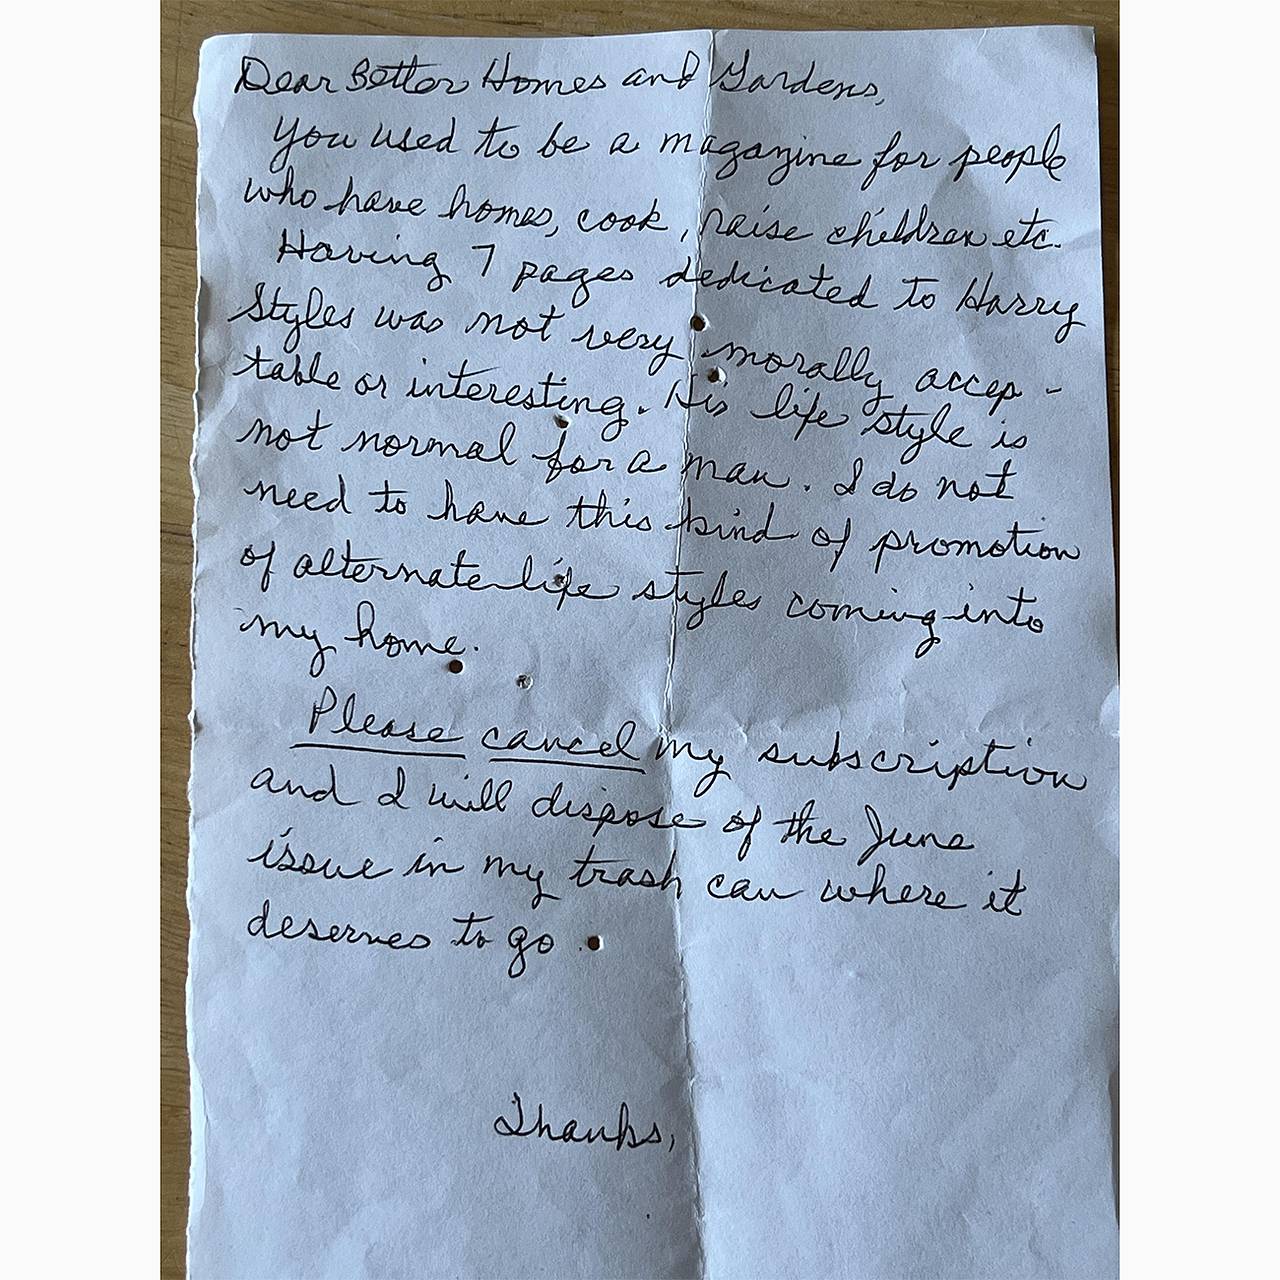 Dear Better Homes and Gardens,
You used to be a magazine for people
who have homes, cook, raise children etc.
Having 7 pages dedicated to Harry
Styles was not very morally accep-
table or interesting. His life style is
not normal for a man. I do not
need to have this kind of promotion
of alternate life styles coming into
my home.
Please cancel my subscription
and I will dispose of the June
issue in my trash can where it
deserves to go.
Thanks,